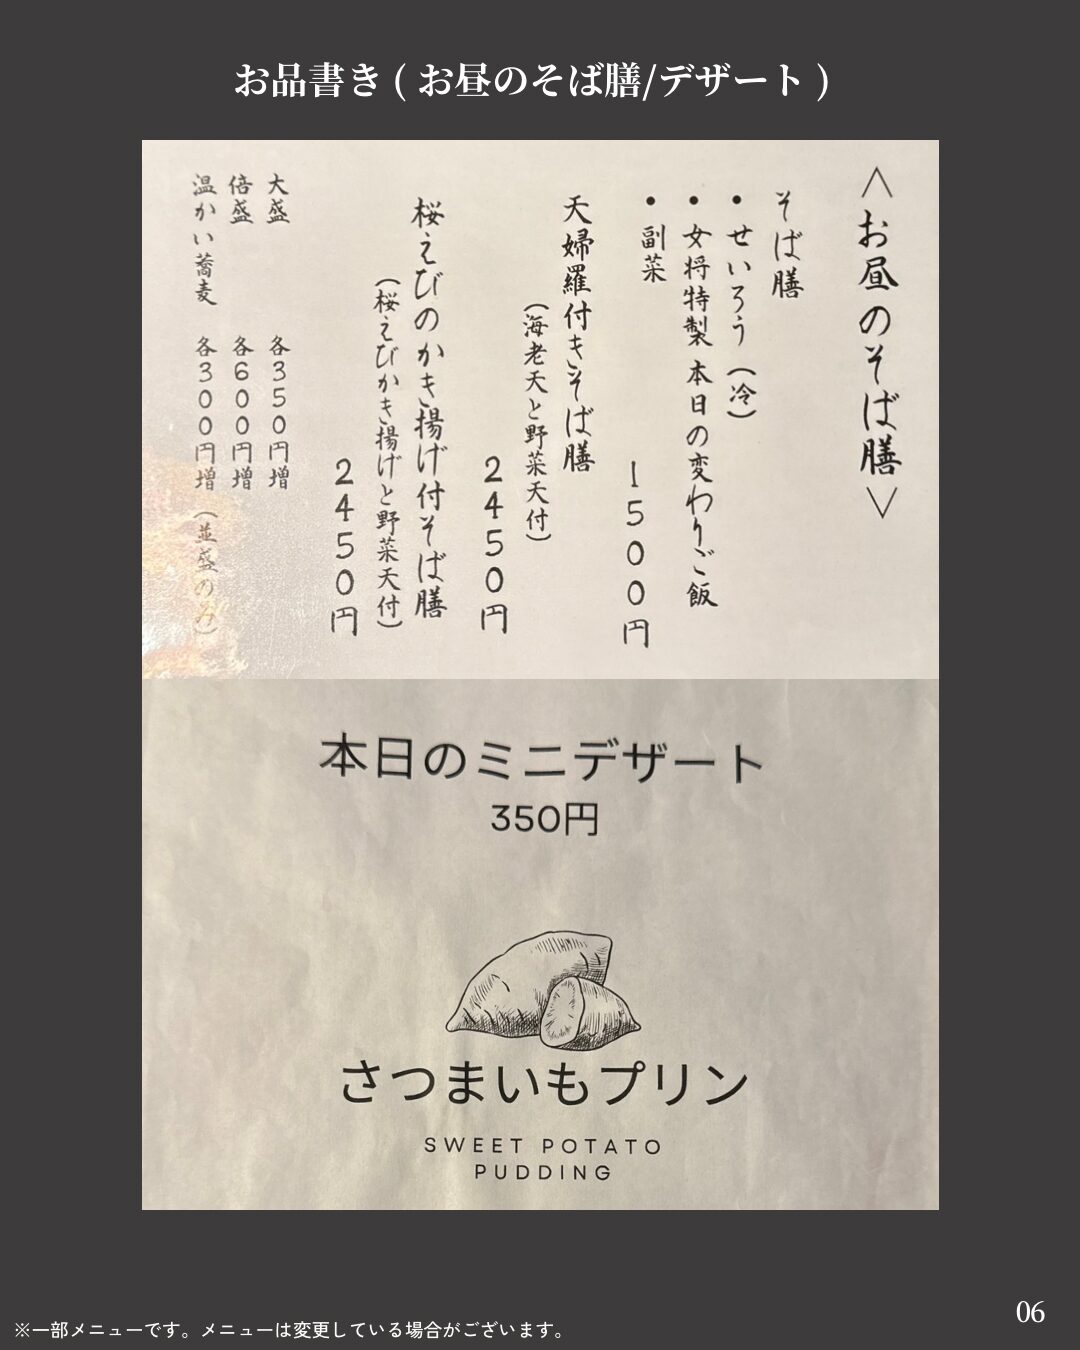 お品書き ( お昼のそば膳/デザート )
＜お昼のそば膳＞
そば膳
•せいろう（冷）
•女将特製 本日の変わりご飯
•副菜
1500円
天婦羅付きそば膳
（海老天と野菜天付）
2450円
桜えびのかき揚げ付そば膳
（桜えびかき揚げと野菜天付）
2450円
大盛 各350円増
倍盛 各600円増
温かい蕎麦 各300円増（並盛のみ）
本日のミニデザート
350円
さつまいもプリン
SWEET POTATO
PUDDING
06
※一部メニューです。メニューは変更している場合がございます。